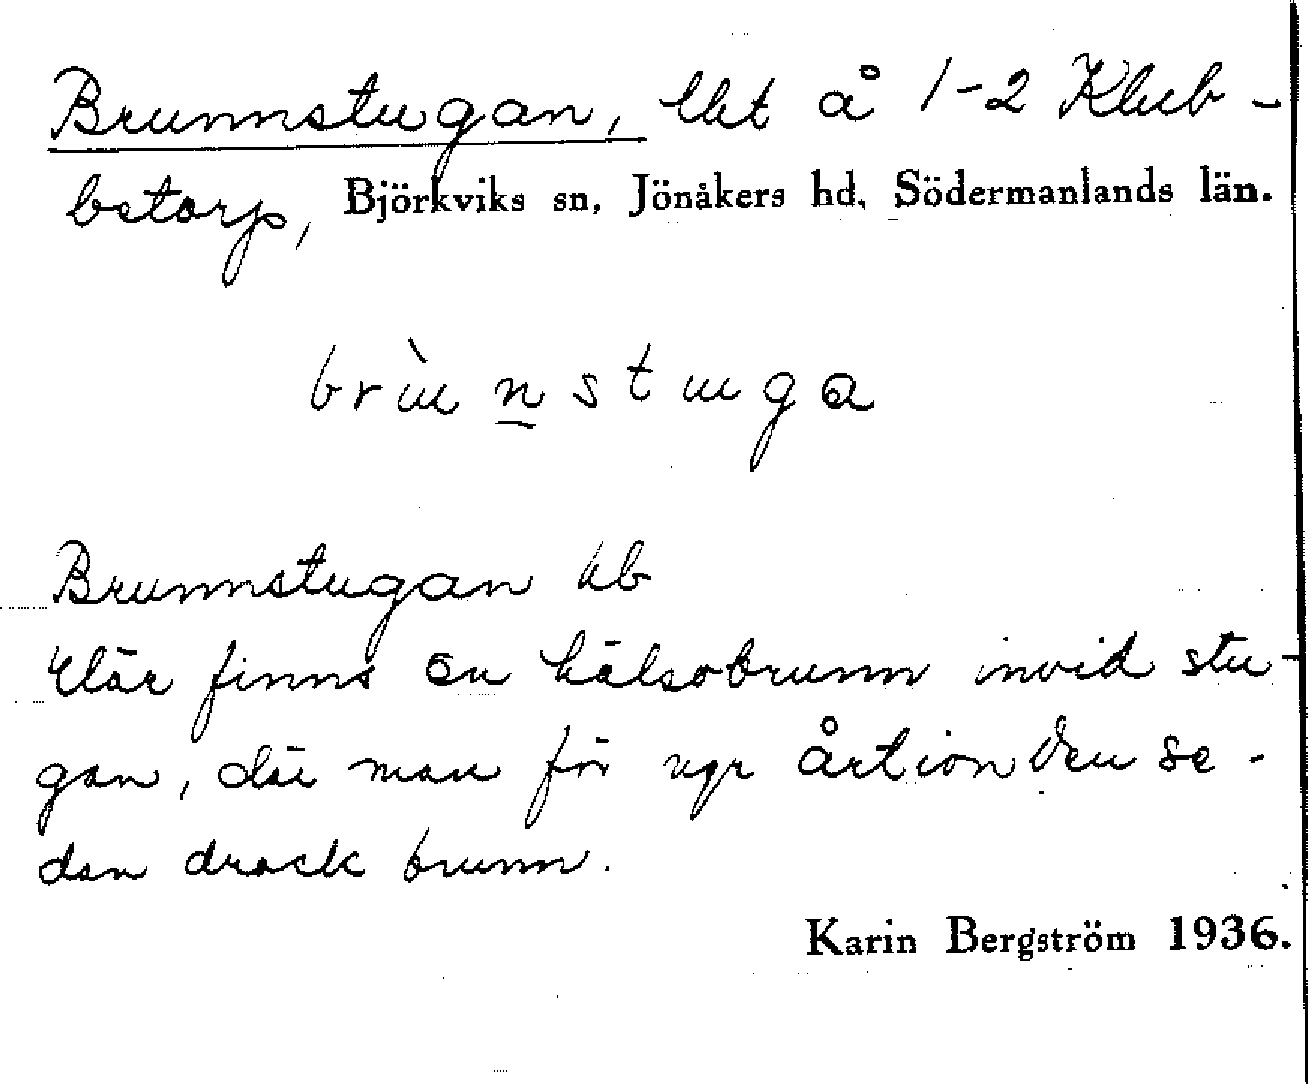 Brunnstugan, lht å 1-2 Klub-
betorp, Björkviks sn, Jönåkers hd, Södermanlands län.
brùn̲stuga
Brunnstugan kb
Här finns en hälsobrunn invid stu-
gan, där man för ngr årtionden se-
dan drack brunn.
Karin Bergström 1936.